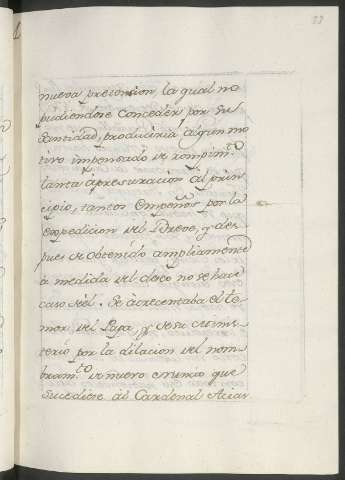 nueva pretension, la qual no
pudiendose conceder por Su
Santidad, produciria algun mo
tivo impensado de rompim.to
tanta apresuracion al prin
cipio, tantos empeños por la
expedicion del Breve, y des
pues de obtenido ampliamente
à medida del deseo no se hace
caso del. Se acrecentaba el te
mor del Papa, y de su Minis
terio por la dilacion del nom
bram.to de nuevo Nuncio que
sucediese al Cardenal